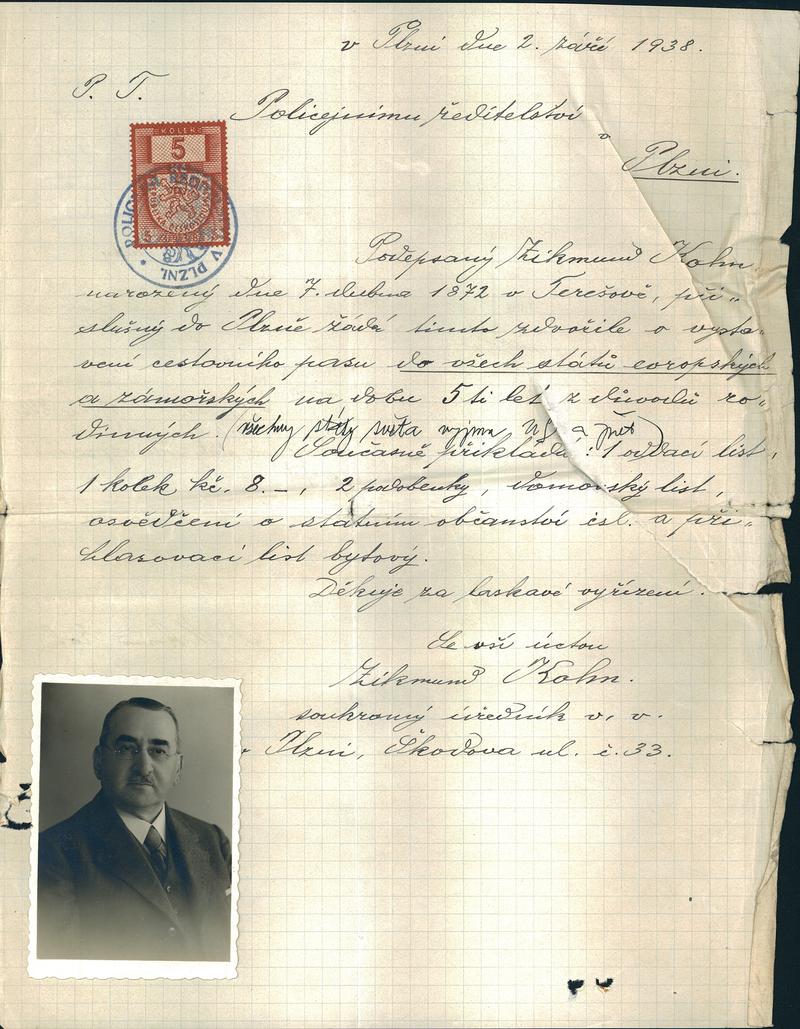 v Plzni dne 2. září 1938.
P. T.
Policejnímu ředitelství
v
Plzni.
KOLEK
5
POLICEJNÍ ŘEDITELSTVÍ V PLZNI
Podepsaný Zikmund Kohn
narozený dne 7. dubna 1872 v Terešově, pří-
slušný do Plzně žádá tímto zdvořile o vysta-
vení cestovního pasu do všech států evropských
a zámořských na dobu 5ti let z důvodů ro-
dinných. (všechny státy světa vyjma
Současně přikládá: 1 oddací list,
1 kolek kč. 8.–, 2 podobenky, domovský list,
osvědčení o státním občanství čsl. a při-
hlašovací list bytový.
Děkuje za laskavé vyřízení.
Se vší úctou
Zikmund Kohn.
soukromý úředník v. v.
Plzni, Škodova ul. č. 33.